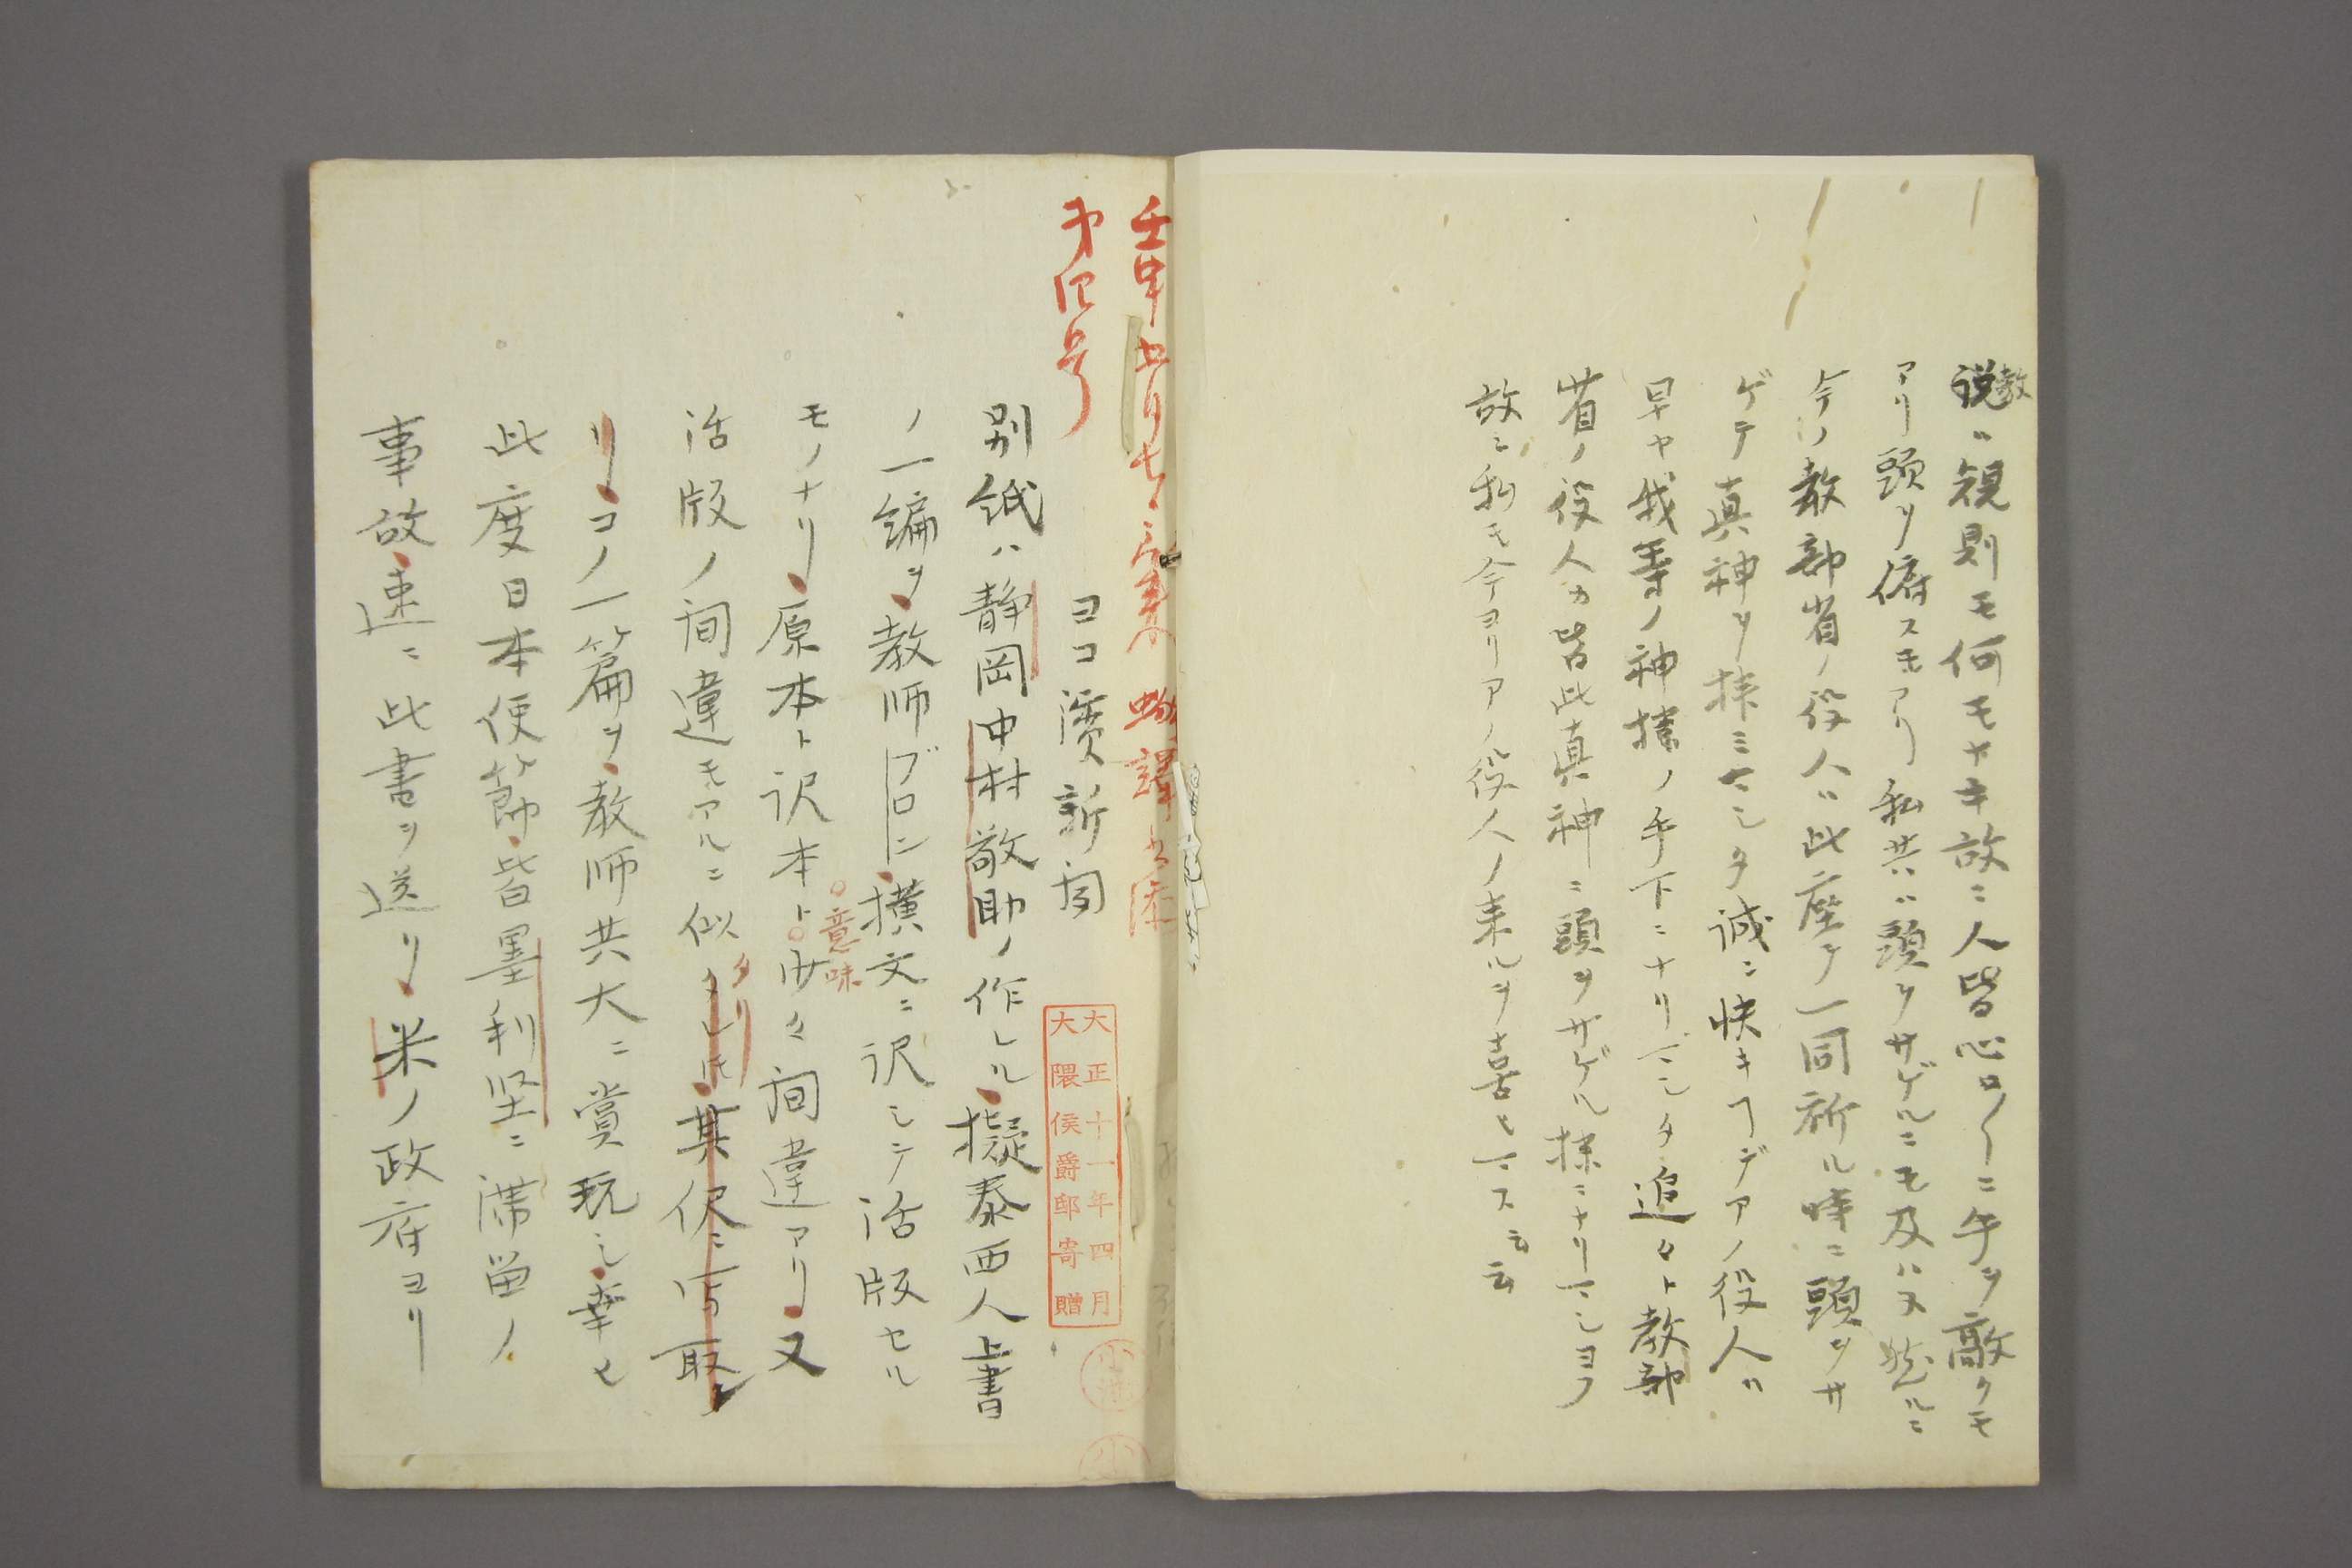 説教ハ規則モ何モナキ故ニ人皆心ロ〳〵ニ手ヲ敲クモ
アリ頭ヲ俯スモアリ私共ハ頭ヲサゲルニモ及ハヌ然ルニ
今ノ教部省ノ役人ハ此座テ一同祈ル時ニ頭ヲサ
ゲテ真神ヲ拝ミマシタ誠ニ快キヿデアノ役人ハ
早ヤ我等ノ神様ノ手下ニナリマシタ追々ト教部
省ノ役人カ皆此真神ニ頭ヲサゲル様ニナリマシヨフ
故ニ私モ今ヨリアノ役人ノ来ルヲ喜ヒマス云云
壬申
第四号
ヨコ濱新聞
別紙ハ静岡中村敬助ノ作レル擬泰西人上書
ノ一編ヲ教師ブロン横文ニ訳シテ活版セル
モノナリ原本ト訳本ト少々間違アリ又
意味
活版ノ間違モアルニ似タレ𪜈其侭ニ写取
タリ
リコノ一篇ヲ教師共大ニ賞玩シ幸ヒ
此度日本使節皆墨利堅ニ滞留ノ
事故速ニ此書ヲ送リ米ノ政府ヨリ
大正十一年四月
大隈侯爵邸寄贈